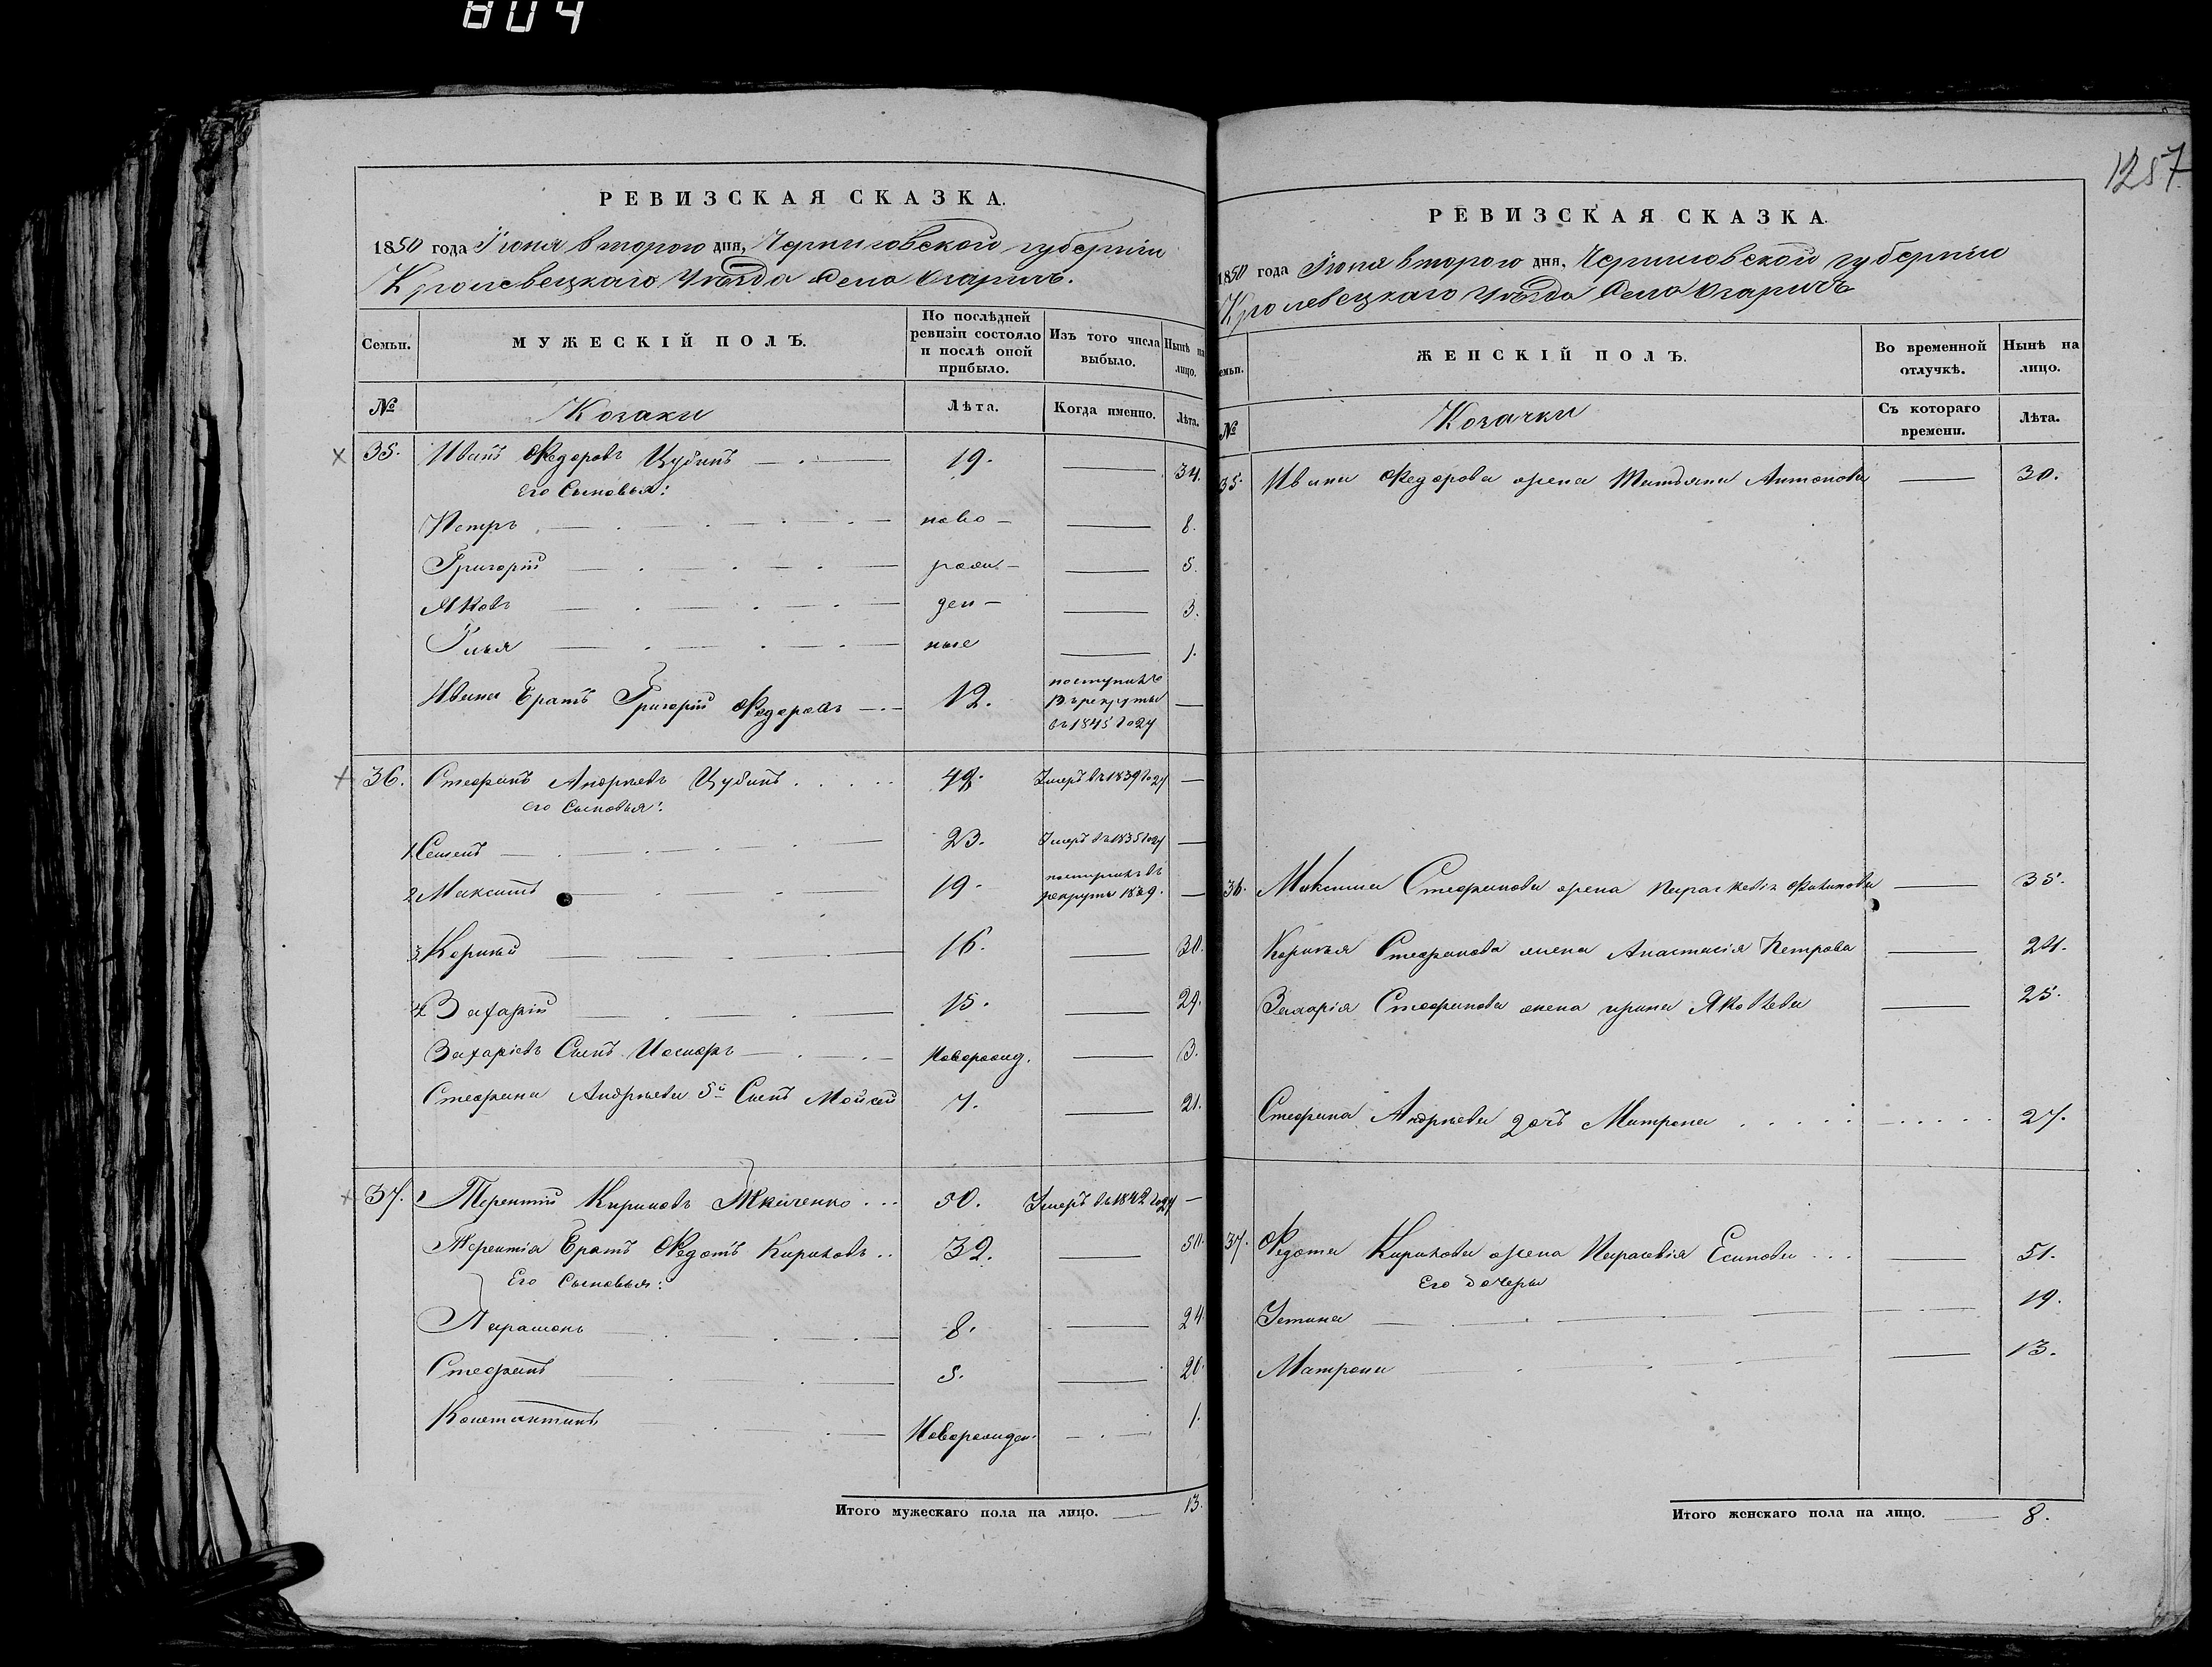 804
1257
РЕВИЗСКАЯ СКАЗКА.
1850 года Іюня второго дня, Черниговской губерніи
Кролевецкаго Уѣзда Села Огаричъ.
Семьи.
МУЖЕСКІЙ ПОЛЪ.
По послѣдней ревизіи состояло и послѣ оной прибыло.
Изъ того числа выбыло.
Нынѣ на лицо.
№
Козаки
Лѣта.
Когда именно.
Лѣта.
35. Иванъ Федоровъ Цубинъ 19. 34.
Его Сыновья:
Петръ ново— 8.
Григорій рож— 5.
Яковъ ден— 3.
Илья ные 1.
Ивана братъ Григорій Федоровъ 12. поступилъ
въ рекруты
въ 1845 году
36. Стефанъ Андреевъ Цубинъ 48. Умеръ въ 1839 году
его Сыновья:
1 Семенъ 23. Умеръ въ 1835 году
2 Максимъ 19. поступилъ въ
рекруты 1849.
3 Корнѣй 16. 30.
4 Захарій 15. 29.
Захаріевъ Сынъ Іосифъ Новорожд. 3.
Стефана Андреева 5й Сынъ Мойсей 7. 21.
37. Терентій Кириловъ Ткаченко 50. Умеръ въ 1842 году
Терентія братъ Федотъ Кириловъ 39. 50.
Его Сыновья:
Парамонъ 8. 24.
Стефанъ 5. 20.
Константинъ Новорожден. 1.
Итого мужескаго пола на лицо. 13.
РЕВИЗСКАЯ СКАЗКА.
1850 года Іюня второго дня, Черниговской губерніи
Кролевецкаго Уѣзда Села Огаричъ
емьи.
ЖЕНСКІЙ ПОЛЪ.
Во временной отлучкѣ.
Нынѣ на лицо.
№
Козачки
Съ котораго времени.
Лѣта.
35. Ивана Федорова жена Татьяна Антонова 30.
36. Максима Стефанова жена Параскевія 35.
Корнѣя Стефанова жена Анастасія Петрова 24.
Захарія Стефанова жена Ирина Яковлева 25.
Стефана Андреева дочь Матрона 27.
37. Федота Кирилова жена Парасковія Есипова 51.
Его дочери
Устина 19.
Матрона 13.
Итого женскаго пола на лицо. 8.